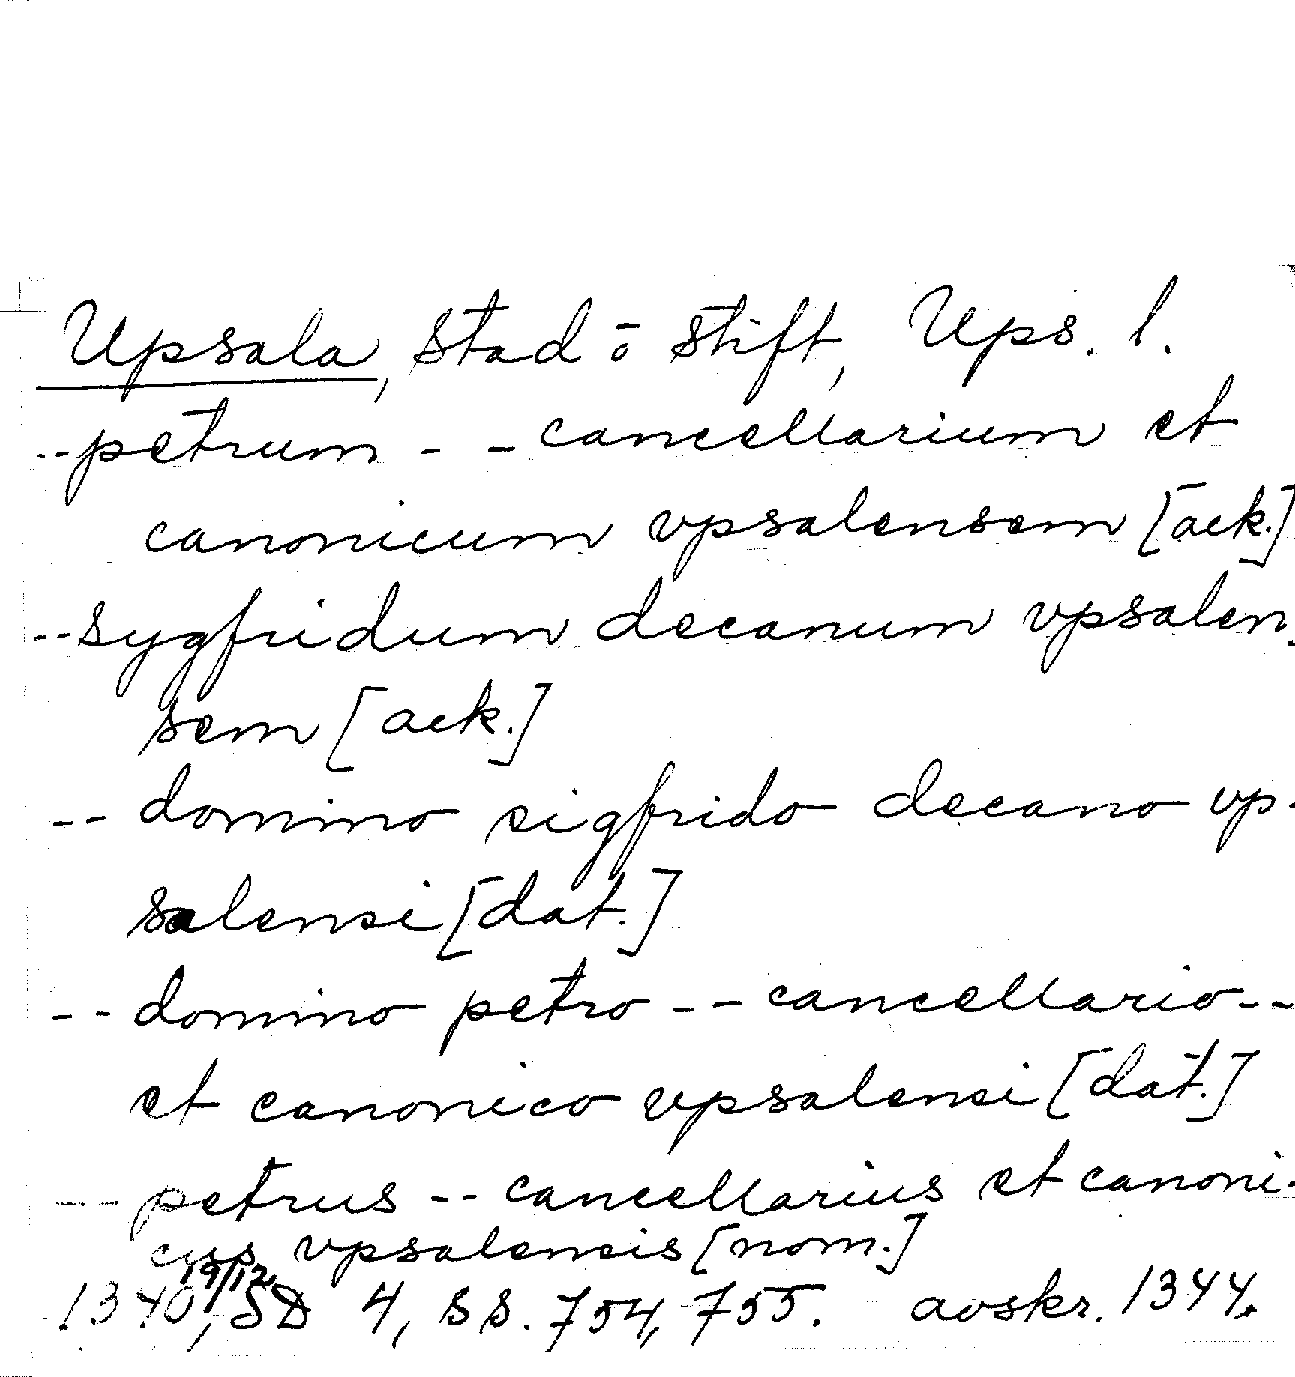 Upsala, stad o stift, Ups. l.
-- petrum -- cancellarium et
canonicum vpsalensem [ack.]
-- sygfridum decanum vpsalen-
sem [ack.]
-- domino sigfrido decano vp-
salensi [dat.]
-- domino petro -- cancellario --
et canonico vpsalensi [dat.]
-- petrus -- cancellarius et canoni-
cus vpsalensis [nom.]
1340 19/12, SD 4, ss. 754, 755. avskr. 1344.